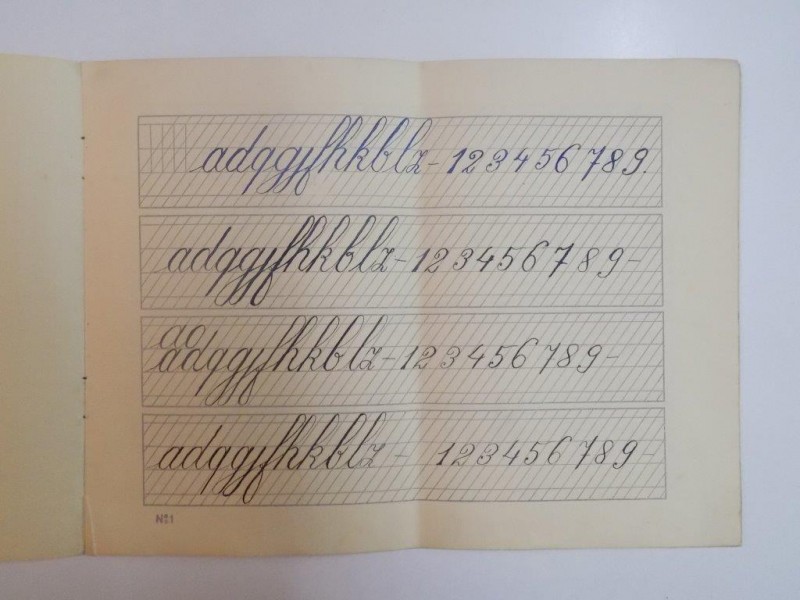 adqgjfhkblz- 123456789.
adqgjfhkblz-123456789-
ao
adqgjfhkblz-123456789-
adqgjfhkblz- 123456789-
№1